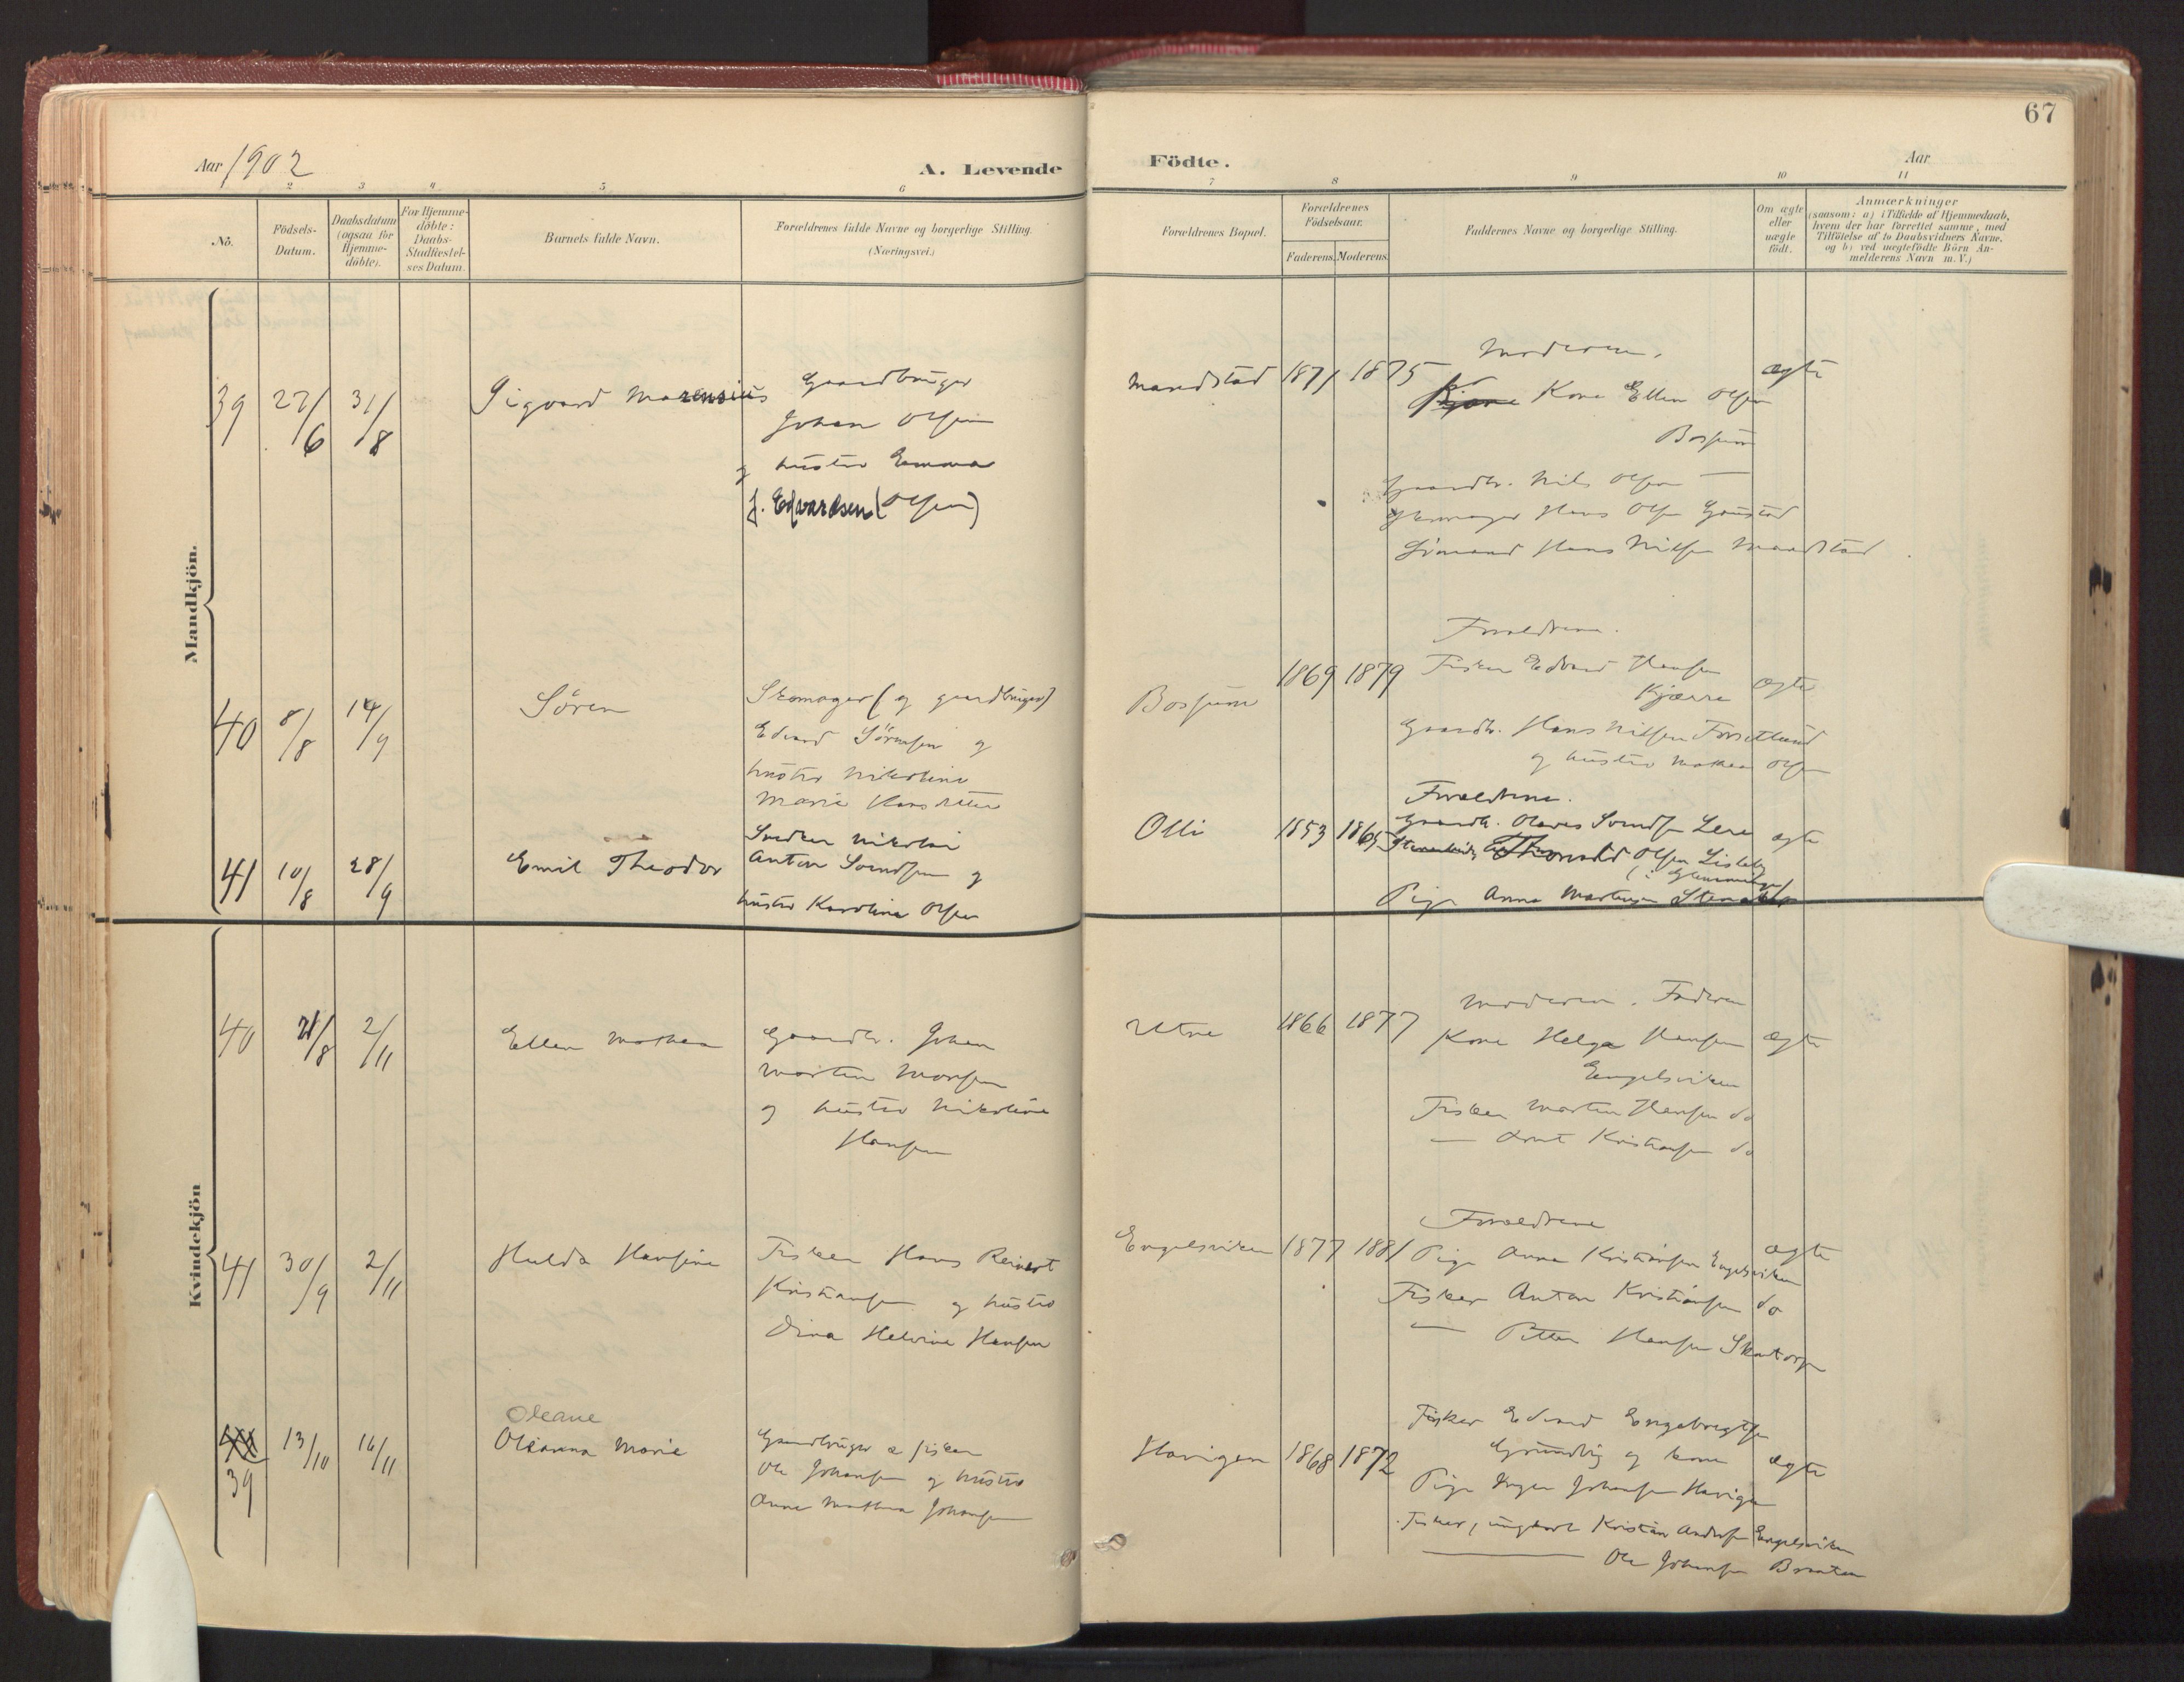 67
Aar 1902
A. Levende Födte.
Aar
2 3 4 5 6 7 8 9 10 11
No.
Födsels-Datum.
Daabsdatum (ogsaa for Hjemme-döbte).
For Hjemme-döbte: Daabs-Stadfæstel-ses Datum.
Barnets fulde Navn.
Forældrenes fulde Navne og borgerlige Stilling.
(Næringsvei.)
Forældrenes Bopæl.
Forældrenes Födselsaar.
Faderens. Moderens.
Faddernes Navne og borgerlige Stilling.
Om ægte eller uægte födt.
Anmærkninger
(saasom: a) i Tilfælde af Hjemmedaab,
hvem der har forrettet samme, med
Tilföielse af to Daabsvidners Navne,
og b) ved uægtefödte Börn An-
melderens Navn m. V.)
Mandkjön.
39 27/6 31/8 Sigvard Marensius
Gaardbruger
Johan Olsen
og hustru Emma
f. Edvardsen (Olsen)
1871 1875
Moderen.
Kone Ellen Olsen
Bossum
Gaardb. Nils Olsen —
Skomager Hans Olsen
Hans Nilsen
ægte
40 8/8 14/9 Sören
Skomager (og gaardbruger)
Edvard Sörensen og
hustru Nikoline
Marie Hansdatter
Bossum 1869 1879
Forældrene.
Fisker Edvard Hansen
Kjærre
Gaardb. Hans Nilsen
og hustru Mathea Olsen
ægte
41 10/8 28/9 Emil Theodor
Snedker Nikolai
Anton Svendsen og
hustru Karoline Olsen
Olli 1853 1865
Forældrene.
Gaardb. Olaves Svendsen Lere
Thorvald Olsen Lisleby
Pige Anna Martinsen
ægte
Kvindekjön
40 21/8 2/11 Ellen Mathea
Gaardb. Johan
Martin Monsen
og hustru Nikoline
Hansen
Utne 1866 1877
Moderen. Faderen
Kone Helga Hansen
Engelsviken
Fisker Martin Hansen do
— Arnt Kristiansen do
ægte
41 30/9 2/11 Hulda Hansine
Fisker Hans Reinert
Kristiansen og hustru
Dina Helvine Hansen
Engelsviken 1877 1881
Forældrene
Pige Anna Kristiansen Engelsviken
Fisker Anton Kristiansen do
— Petter Hansen
ægte
Oleane
39 13/10 16/11 Oleanna Marie
Gaardbruger & fisker
Ole Johansen og hustru
Anne Mathea Johansen
Havigen 1868 1872
Fisker Edvard Engebregtsen
og kone
Pige Inga Johansen Havigen
Fisker, ungkarl Kristian Andersen Engelsviken
— Ole Johansen Braaten
ægte